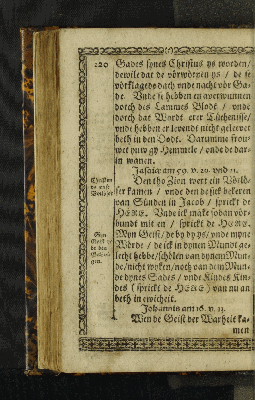 120 Gades synes Christus ys worden /
dewile dat de vörwörpen ys / de se
vörklagede dach vnde nacht vör Ga-
de. Vnde se hebben en averwunnen
dorch des Lammes Blodt / vnde
dorch dat Wordt erer Tüchenisse /
vnde hebben er levendt nicht gelevet
beth in den Dodt. Darumme frou-
wet juw gy Hemmele / vnde de dar-
in wanen.
Jesaie am 59. v. 20. vnd 21.
Den tho Zion wert ein Vörlö-
ser kamen / vnde den de sick bekeren
van Sünden in Jacob / sprickt de
HERE. Vnde ick make sodan vör-
bundt mit en / sprickt de HERE.
Myn Geist / de by dy ys / vnde myne
Wörde / de ick in dynen Mundt ge-
lecht hebbe / schölen van dynem Mun-
de / nicht wyken / noch van dem Mun-
de dynes Sades / vnde Kindes Kin-
des ( sprickt de HERE ) van nu an
beth in ewicheit.
Johannis am 16. v. 13.
Wen de Geist der Warheit ka-
men